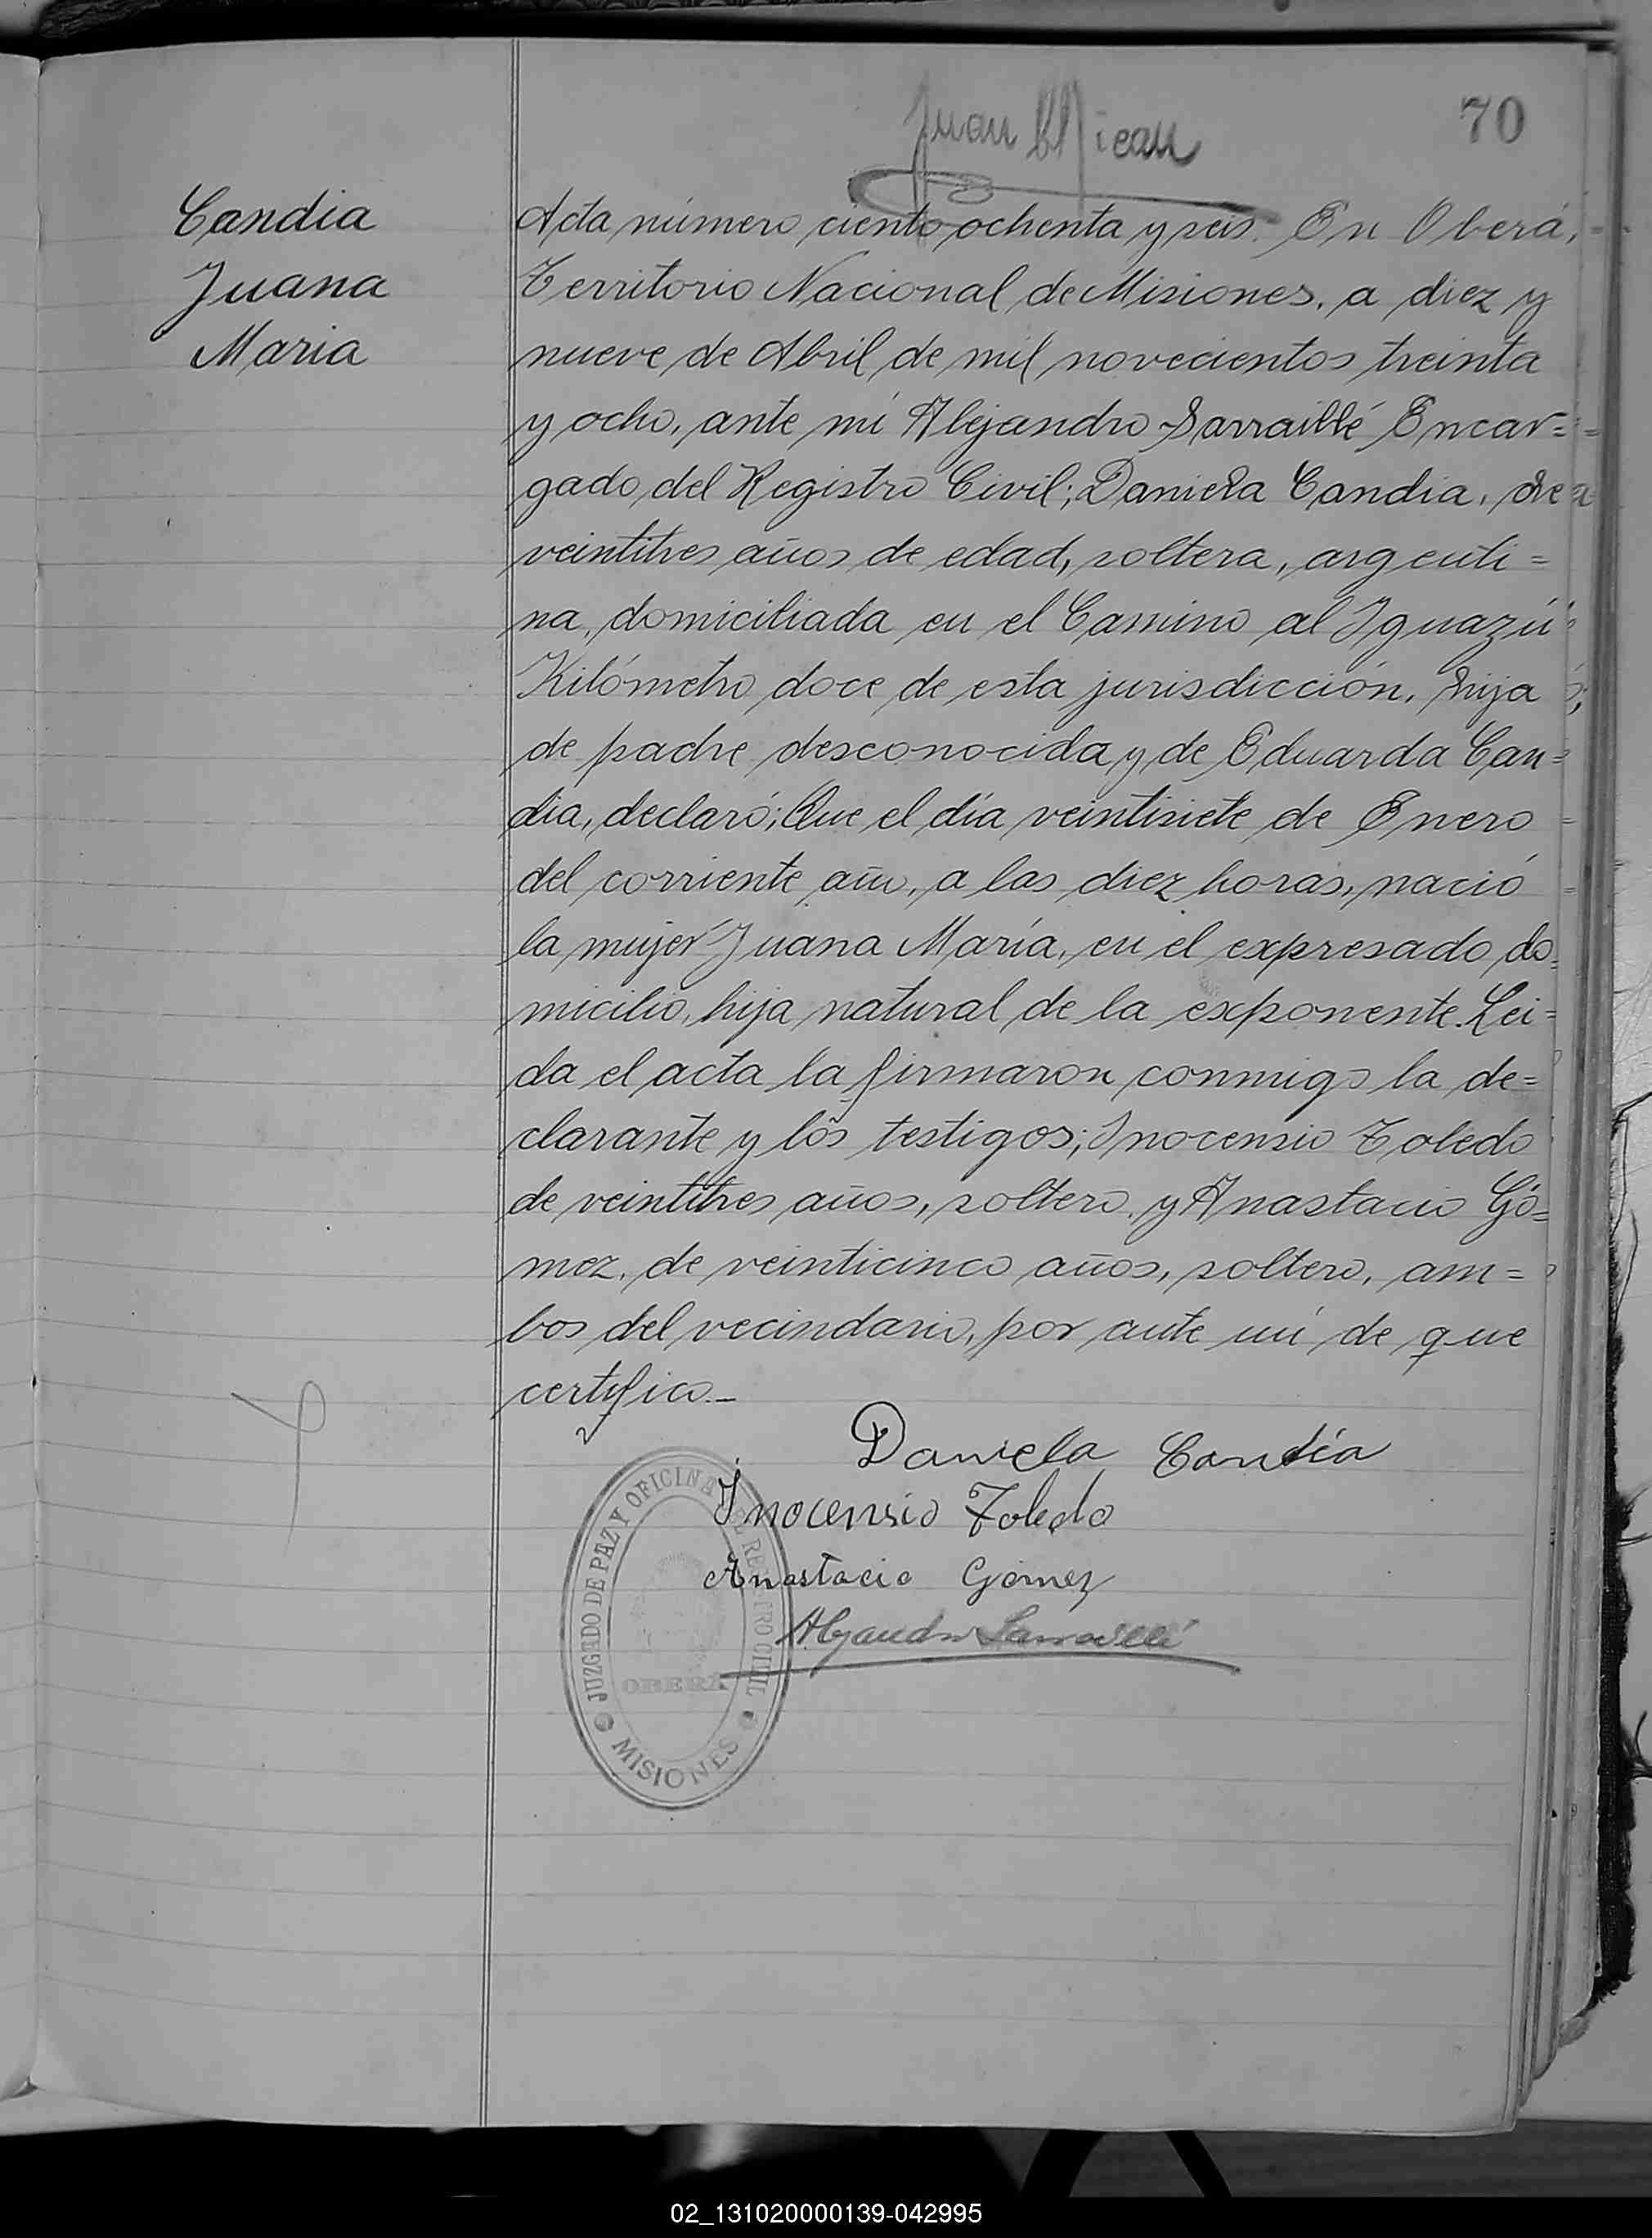 70
Juan
Candia
Juana
Maria
Acta número ciento ochenta y seis. En Oberá,
Territorio Nacional de Misiones, a diez y
nueve de Abril de mil novecientos treinta
y ocho, ante mí Alejandro Sarraillé Encar=
gado del Registro Civil; Daniela Candia, de
veintitres años de edad, soltera, argenti=
na, domiciliada en el Camino al Iguazú
Kilómetro doce de esta jurisdicción, hija
de padre desconocida y de Eduarda Can=
dia, declaró; Que el día veintisiete de Enero
del corriente año, a las diez horas, nació
la mujer Juana María, en el expresado do=
micilio, hija natural de la exponente. Lei=
da el acta la firmaron conmigo la de=
clarante y los testigos; Inocensio Toledo
de veintitres años, soltero, y Anastacio Gó=
mez, de veinticinco años, soltero, am=
bos del vecindario, por ante mí de que
certifico.-
Daniela Candia
Inocensio Toledo
Anastacio Gomez
Alejandro Sarraillé
JUZGADO DE PAZ Y OFICINA DEL REGISTRO CIVIL
OBERÁ
MISIONES
02_131020000139-042995